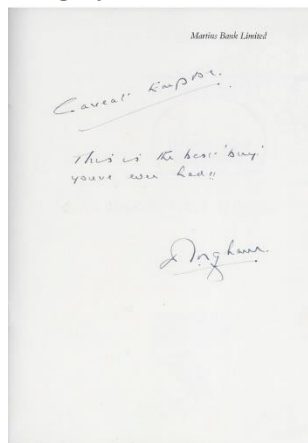 Martins Bank Limited
Caveat Emptor.
This is the best 'buy'
youve ever had!!